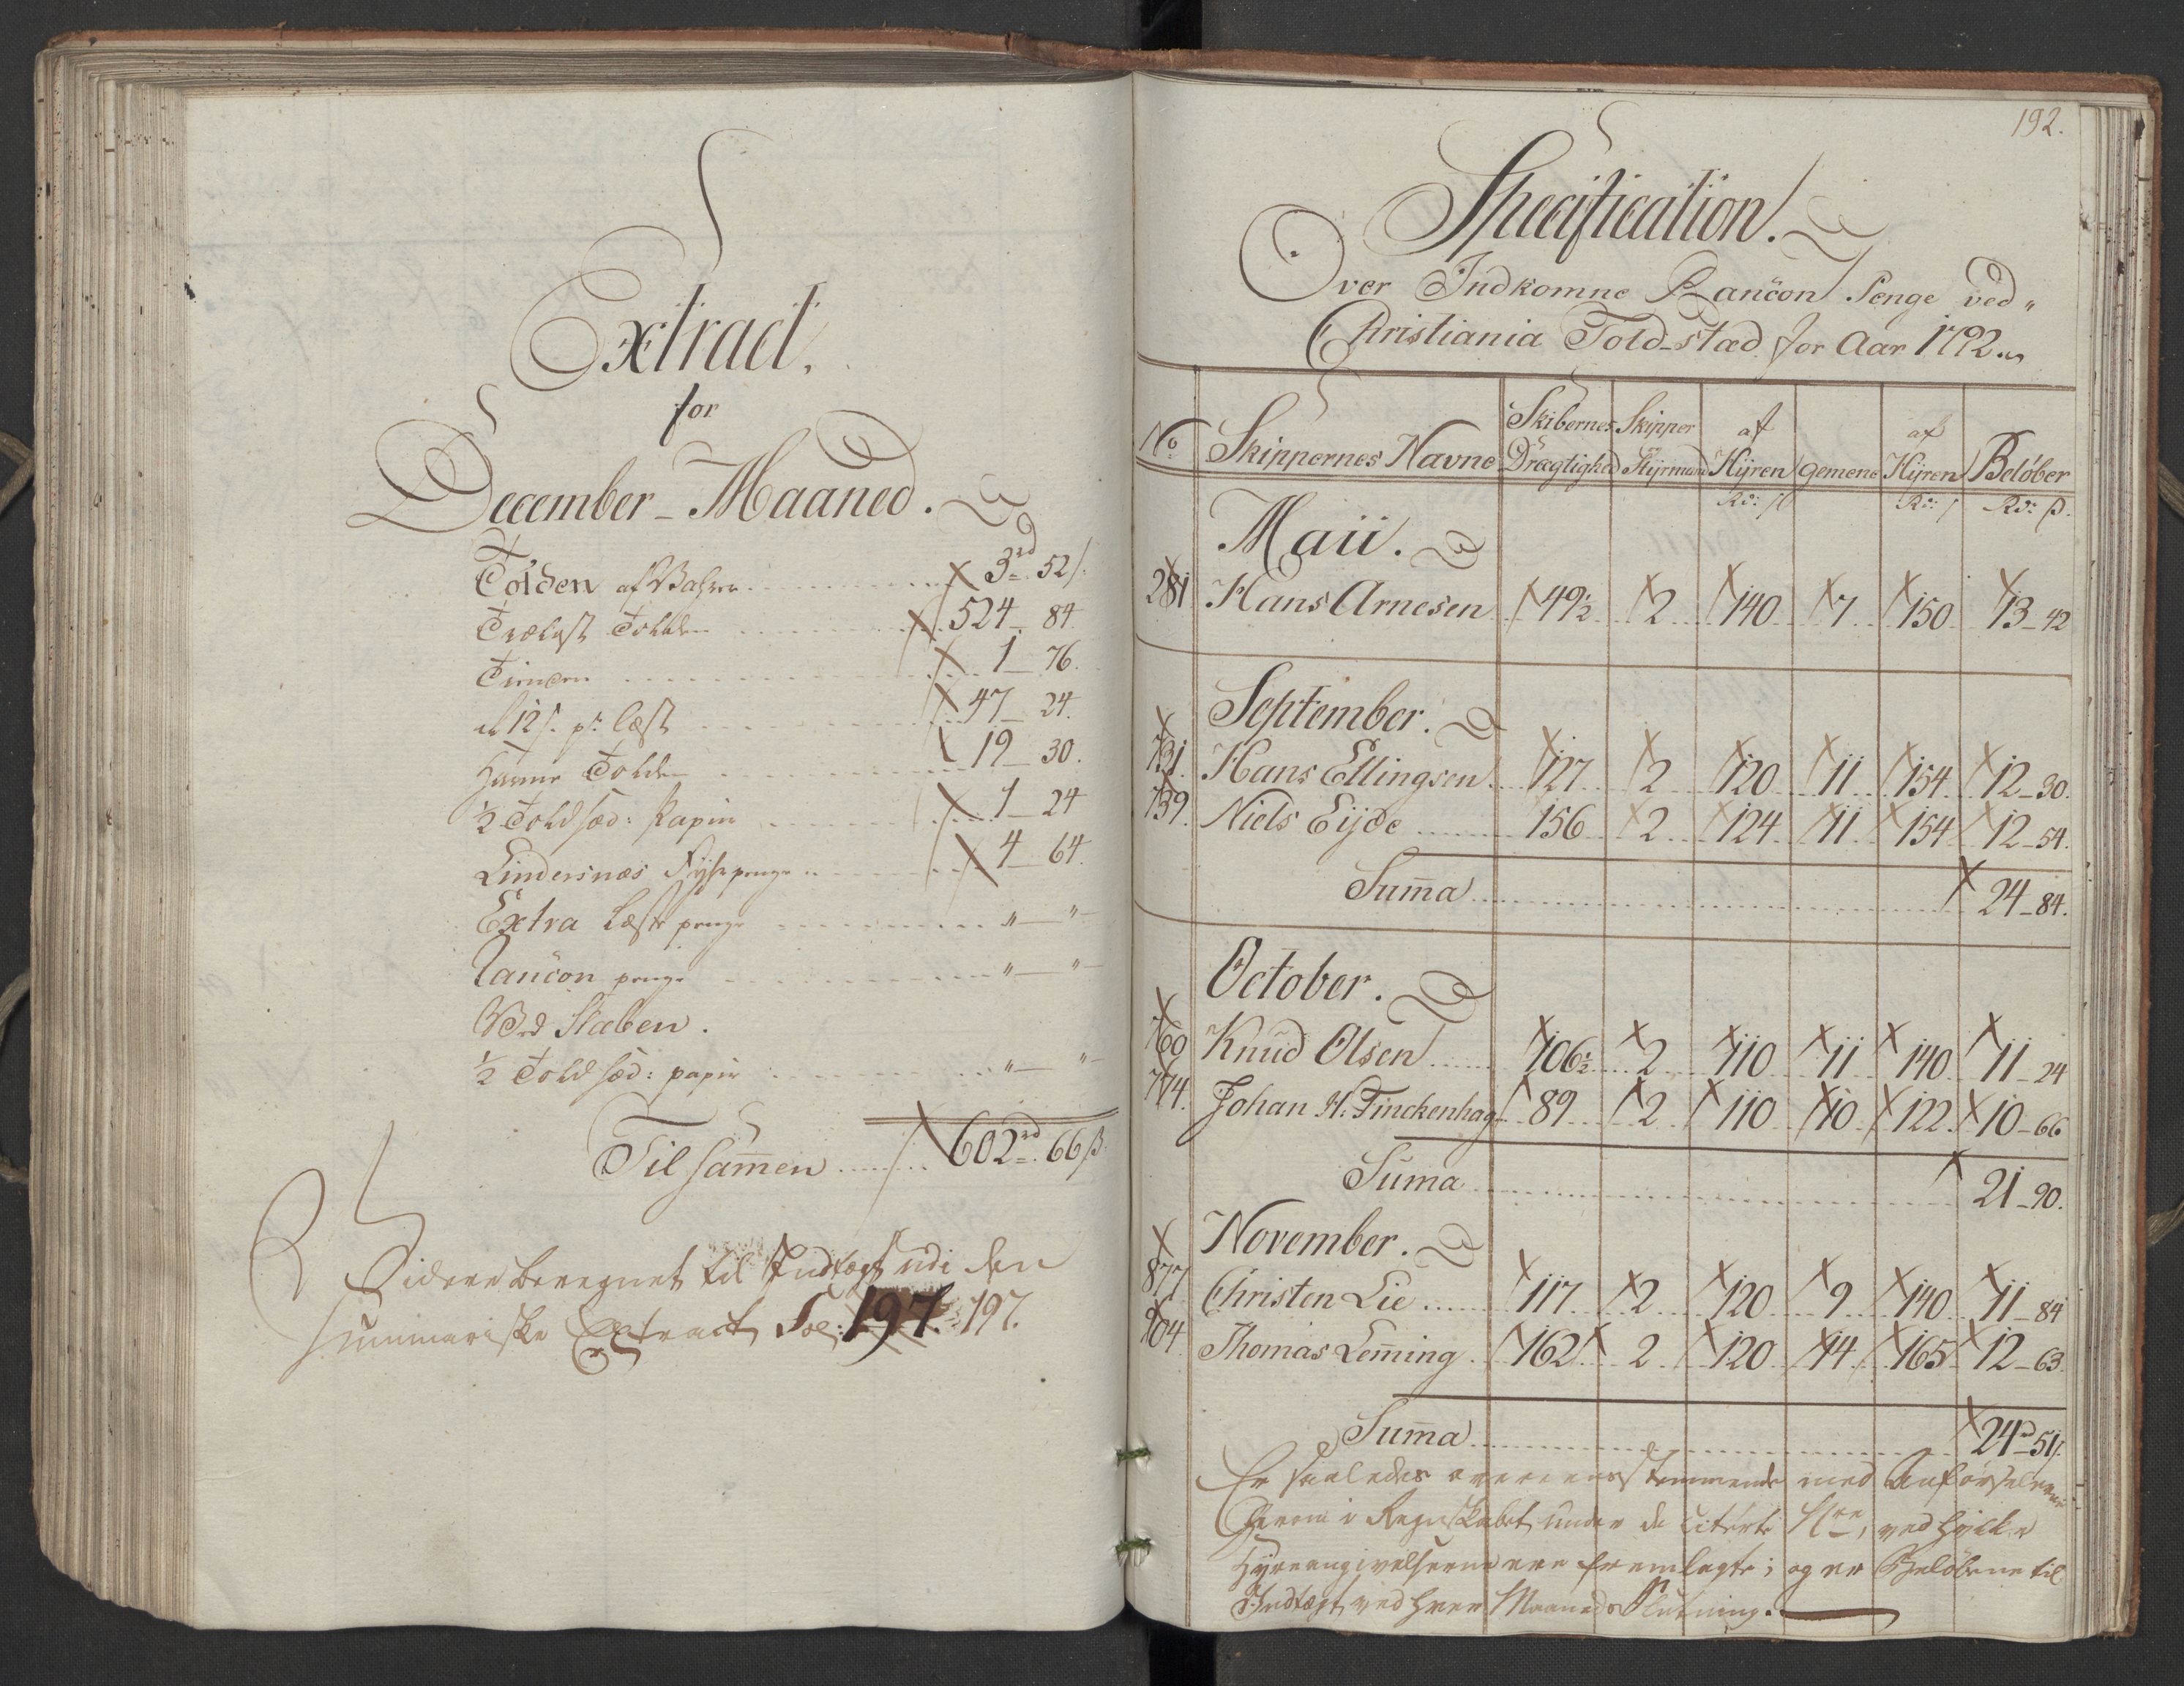 Extract,
for
December-Maaned.
Tolden af Vahren ... 3rd 52 s.
Trælast Tolden ... 524 - 84
Tienden ... 1 - 76.
a 12 s. pr. Læst ... 47 - 24.
Havne Tolden ... 19 - 30.
½ Told sæd: Papir ... 1 - 24
Lindersnæs Fyhr penge ... 4 - 64.
Extra Læste penge ... " - "
Rancon penge ... " - "
Ved Staben.
½ Told sæd: papir ... " - "
Til sam̄en ... 602rd 66 ß.
Videre beregnet til Indtægt udi den
summariske Extract Fol: 197. 197.
192.
Specification.
Over Indkomne Rancon Penge ved
Christiania Told-stæd for Aar 1792.
No. Skippernes Navne Skibernes Drægtighed Skipper Styrmand af Hyren gemene af Hyren Beløber
Rd: s Rd: s Rd: ß.
Maii.
281 Hans Arnesen 49½ 2 140 7 150 13-42
September.
731. Hans Ellingsen 127 2 120 11 154 12-30.
739. Niels Eijde 156 2 124 11 154 12-54.
Sum̄a 24-84.
October.
760 Knud Olsen 106½ 2 110 11 140 11-24
774. Johan H. Finckenhag 89 2 110 10 122 10-66
Suma 21-90.
November.
877 Christen Lie 117 2 120 9 140 11-84
904 Thomas Lem̄ing 162 2 120 14 165 12-63
Sum̄a 24rd-51 s.
Er saaledes overeensstemmende med Anførselerne
herom i Regnskabet under de citerte Nre, ved hvilke
Hyreangivelserne ere fremlagte; og er Beløbene til
Indtægt ved hver Maaneds Slutning.